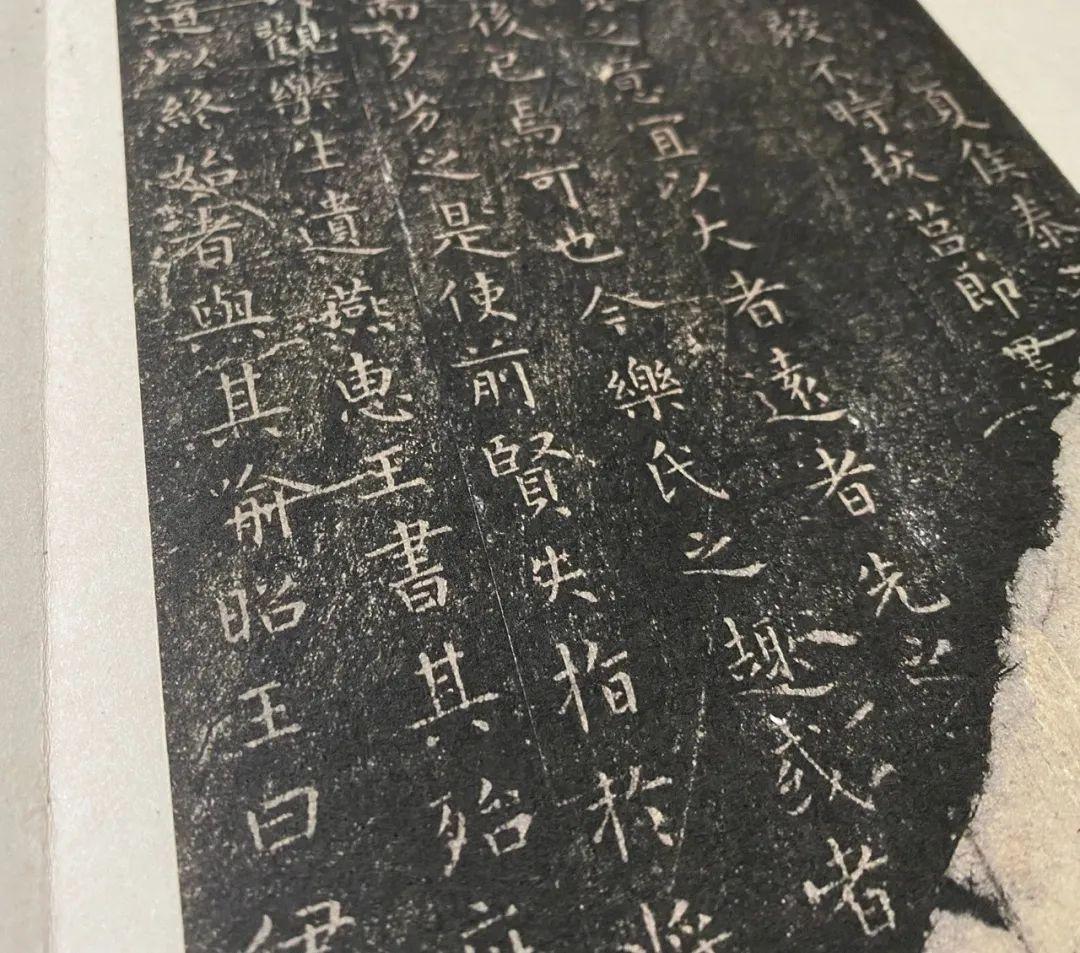 夏侯泰
毅不時拔莒即墨
之意宜以大者遠者先之
後已焉可也今樂氏之趣或者
而多劣之是使前賢失指於將
觀樂生遺燕惠王書其殆
道以終始者與其喻昭王曰伊